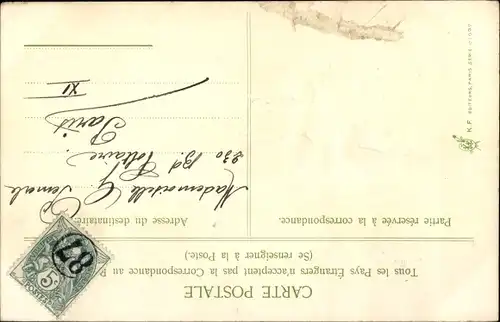 CARTE POSTALE
Tous les Pays Étrangers n'acceptent pas la Correspondance au
(Se renseigner à la Poste.)
Partie réservée à la correspondance.
Adresse du destinataire.
Mademoiselle
230 Bd Voltaire.
Paris
XI
87
5c
POSTES
K.F. ÉDITEURS, PARIS